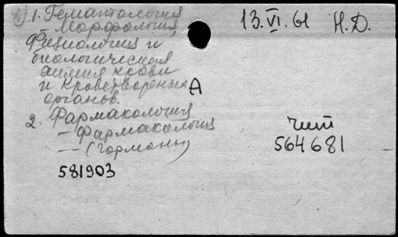 1. Гематология
Морфология
Физиология и
биологическая
химия крови
и кроветворных А
органов.
2. Фармакология
— Фармакология
— (Гормоны)
581903
13.VI.61 Н.Д.
чит
564681